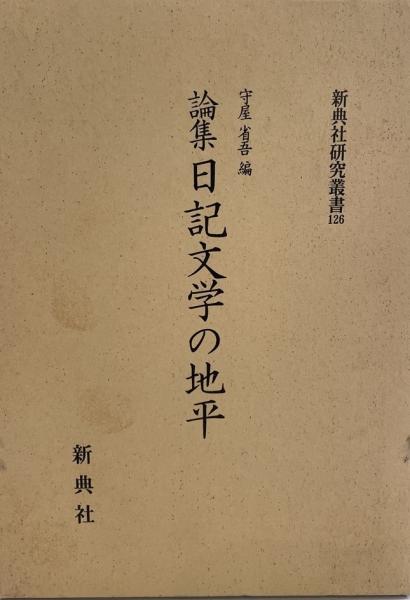 新典社研究叢書126
守屋 省吾 編
論集 日記文学の地平
新典社